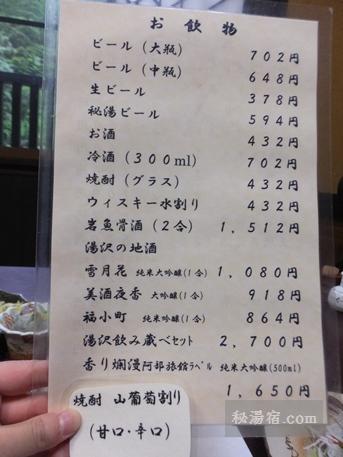 お飲物
ビール(大瓶) 702円
ビール(中瓶) 648円
生ビール 378円
秘湯ビール 594円
お酒 432円
冷酒(300ml) 702円
焼酎(グラス) 432円
ウィスキー水割り 432円
岩魚骨酒(2合) 1,512円
湯沢の地酒
雪月花 純米大吟醸(1合) 1,080円
美酒夜香 大吟醸(1合) 918円
福小町 純米吟醸(1合) 864円
湯沢飲み蔵べセット 2,700円
香り爛漫阿部旅館ラベル 純米大吟醸(500ml)
1,650円
焼酎 山葡萄割り
(甘口・辛口)
秘湯宿.com